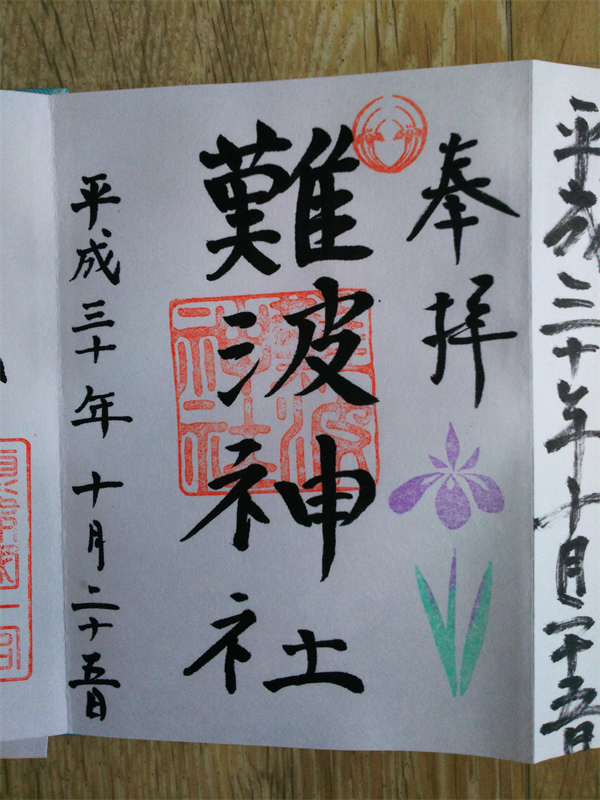 平成三十年十月二十五日
奉拝
難波神社
平成三十年 十月二十五日